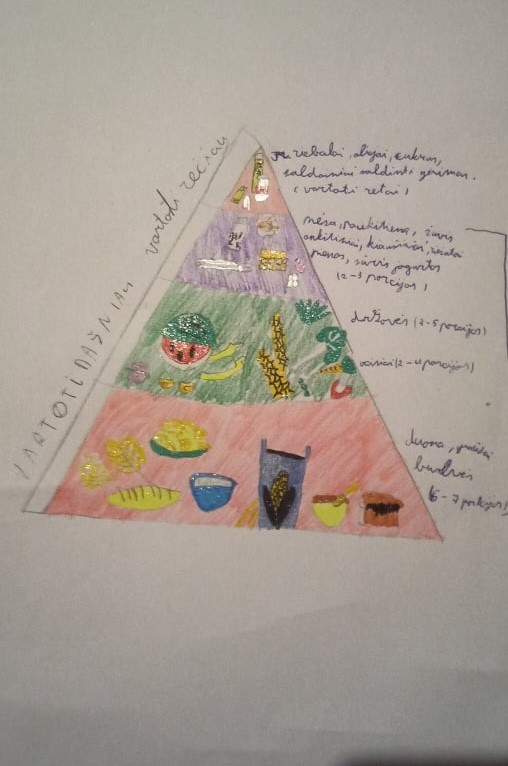 vartoti rečiau
VARTOTI DAŽNIAU
riebalai, aliejai, cukrus,
saldainiai saldinti gėrimai.
(vartoti retai)
mėsa, paukštiena, žuvis
ankštiniai, kiaušiniai, riešutai
pienas, sūris jogurtas
(2-3 porcijos)
daržovės (3-5 porcijos)
vaisiai (2-4 porcijos)
duona,
bulvės
(6-7 porcijos)